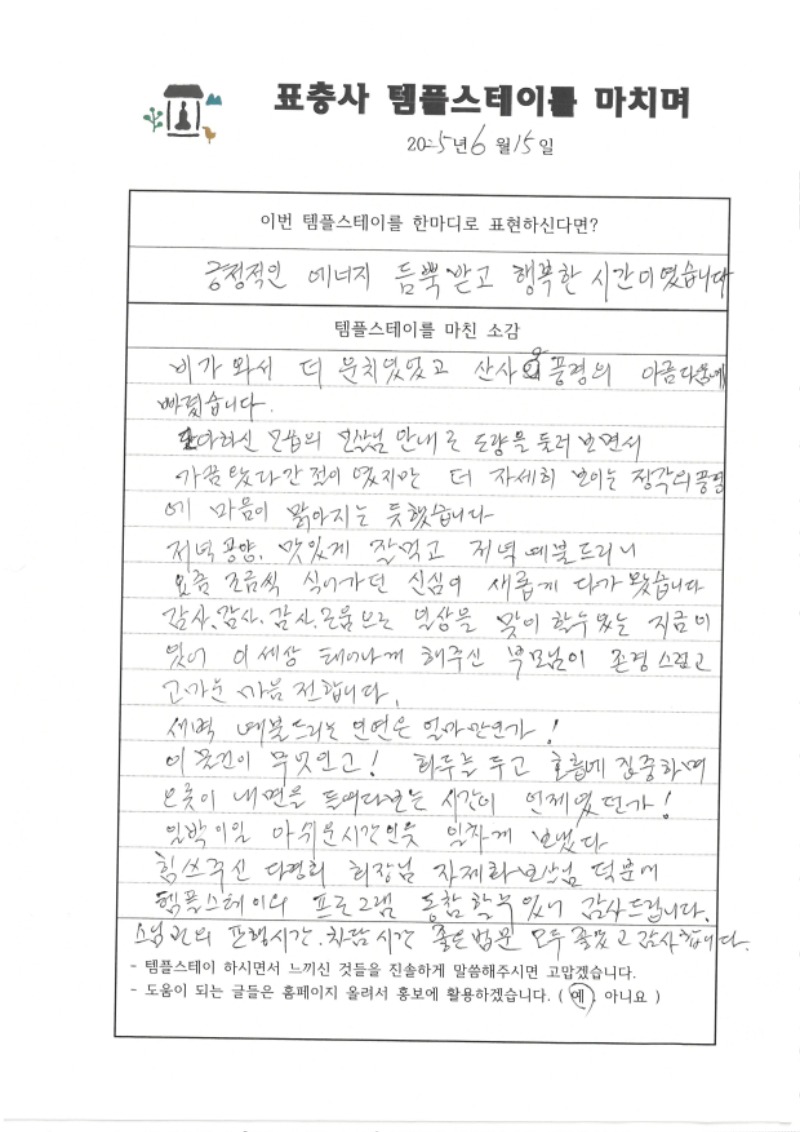 표충사 템플스테이를 마치며
2025년 6월 15일
이번 템플스테이를 한마디로 표현하신다면?
긍정적인 에너지 듬뿍 받고 행복한 시간이였습니다
템플스테이를 마친 소감
비가 와서 더 운치있었고 산사의 풍경의 아름다움에
빠졌습니다.
단아하신 모습의 보살님 안내로 도량을 둘러 보면서
가끔 왔다간 점이 였지만 더 자세히 보이는 장각의 풍경
에 마음이 맑아지는 듯했습니다
저녁공양. 맛있게 잘먹고 저녁예불드리니
요즘 조금씩 식어가던 신심이 새롭게 다가 왔습니다
감사.감사.감사. 일상을 맞이 할수있는 지금이
있어 이 세상 태어나게 해주신 부모님이 존경스럽고
고마운 마음 전합니다.
새벽 예불드리는 인연은 얼마만인가!
이 물건이 무엇인고! 화두를 두고 호흡에 집중하며
오롯이 내면을 들여다보는 시간이 언제였던가!
일박이일 아쉬운시간인듯 일차게 보냈다
힘쓰주신 다경회 회장님 자제화보살님 덕분에
템플스테이의 프로그램 동참할수있어 감사드립니다.
스님과의 시간. 차담시간 좋은법문 모두 좋았고 감사합니다.
- 템플스테이 하시면서 느끼신 것들을 진솔하게 말씀해주시면 고맙겠습니다.
- 도움이 되는 글들은 홈페이지 올려서 홍보에 활용하겠습니다. ( 예 아니요 )